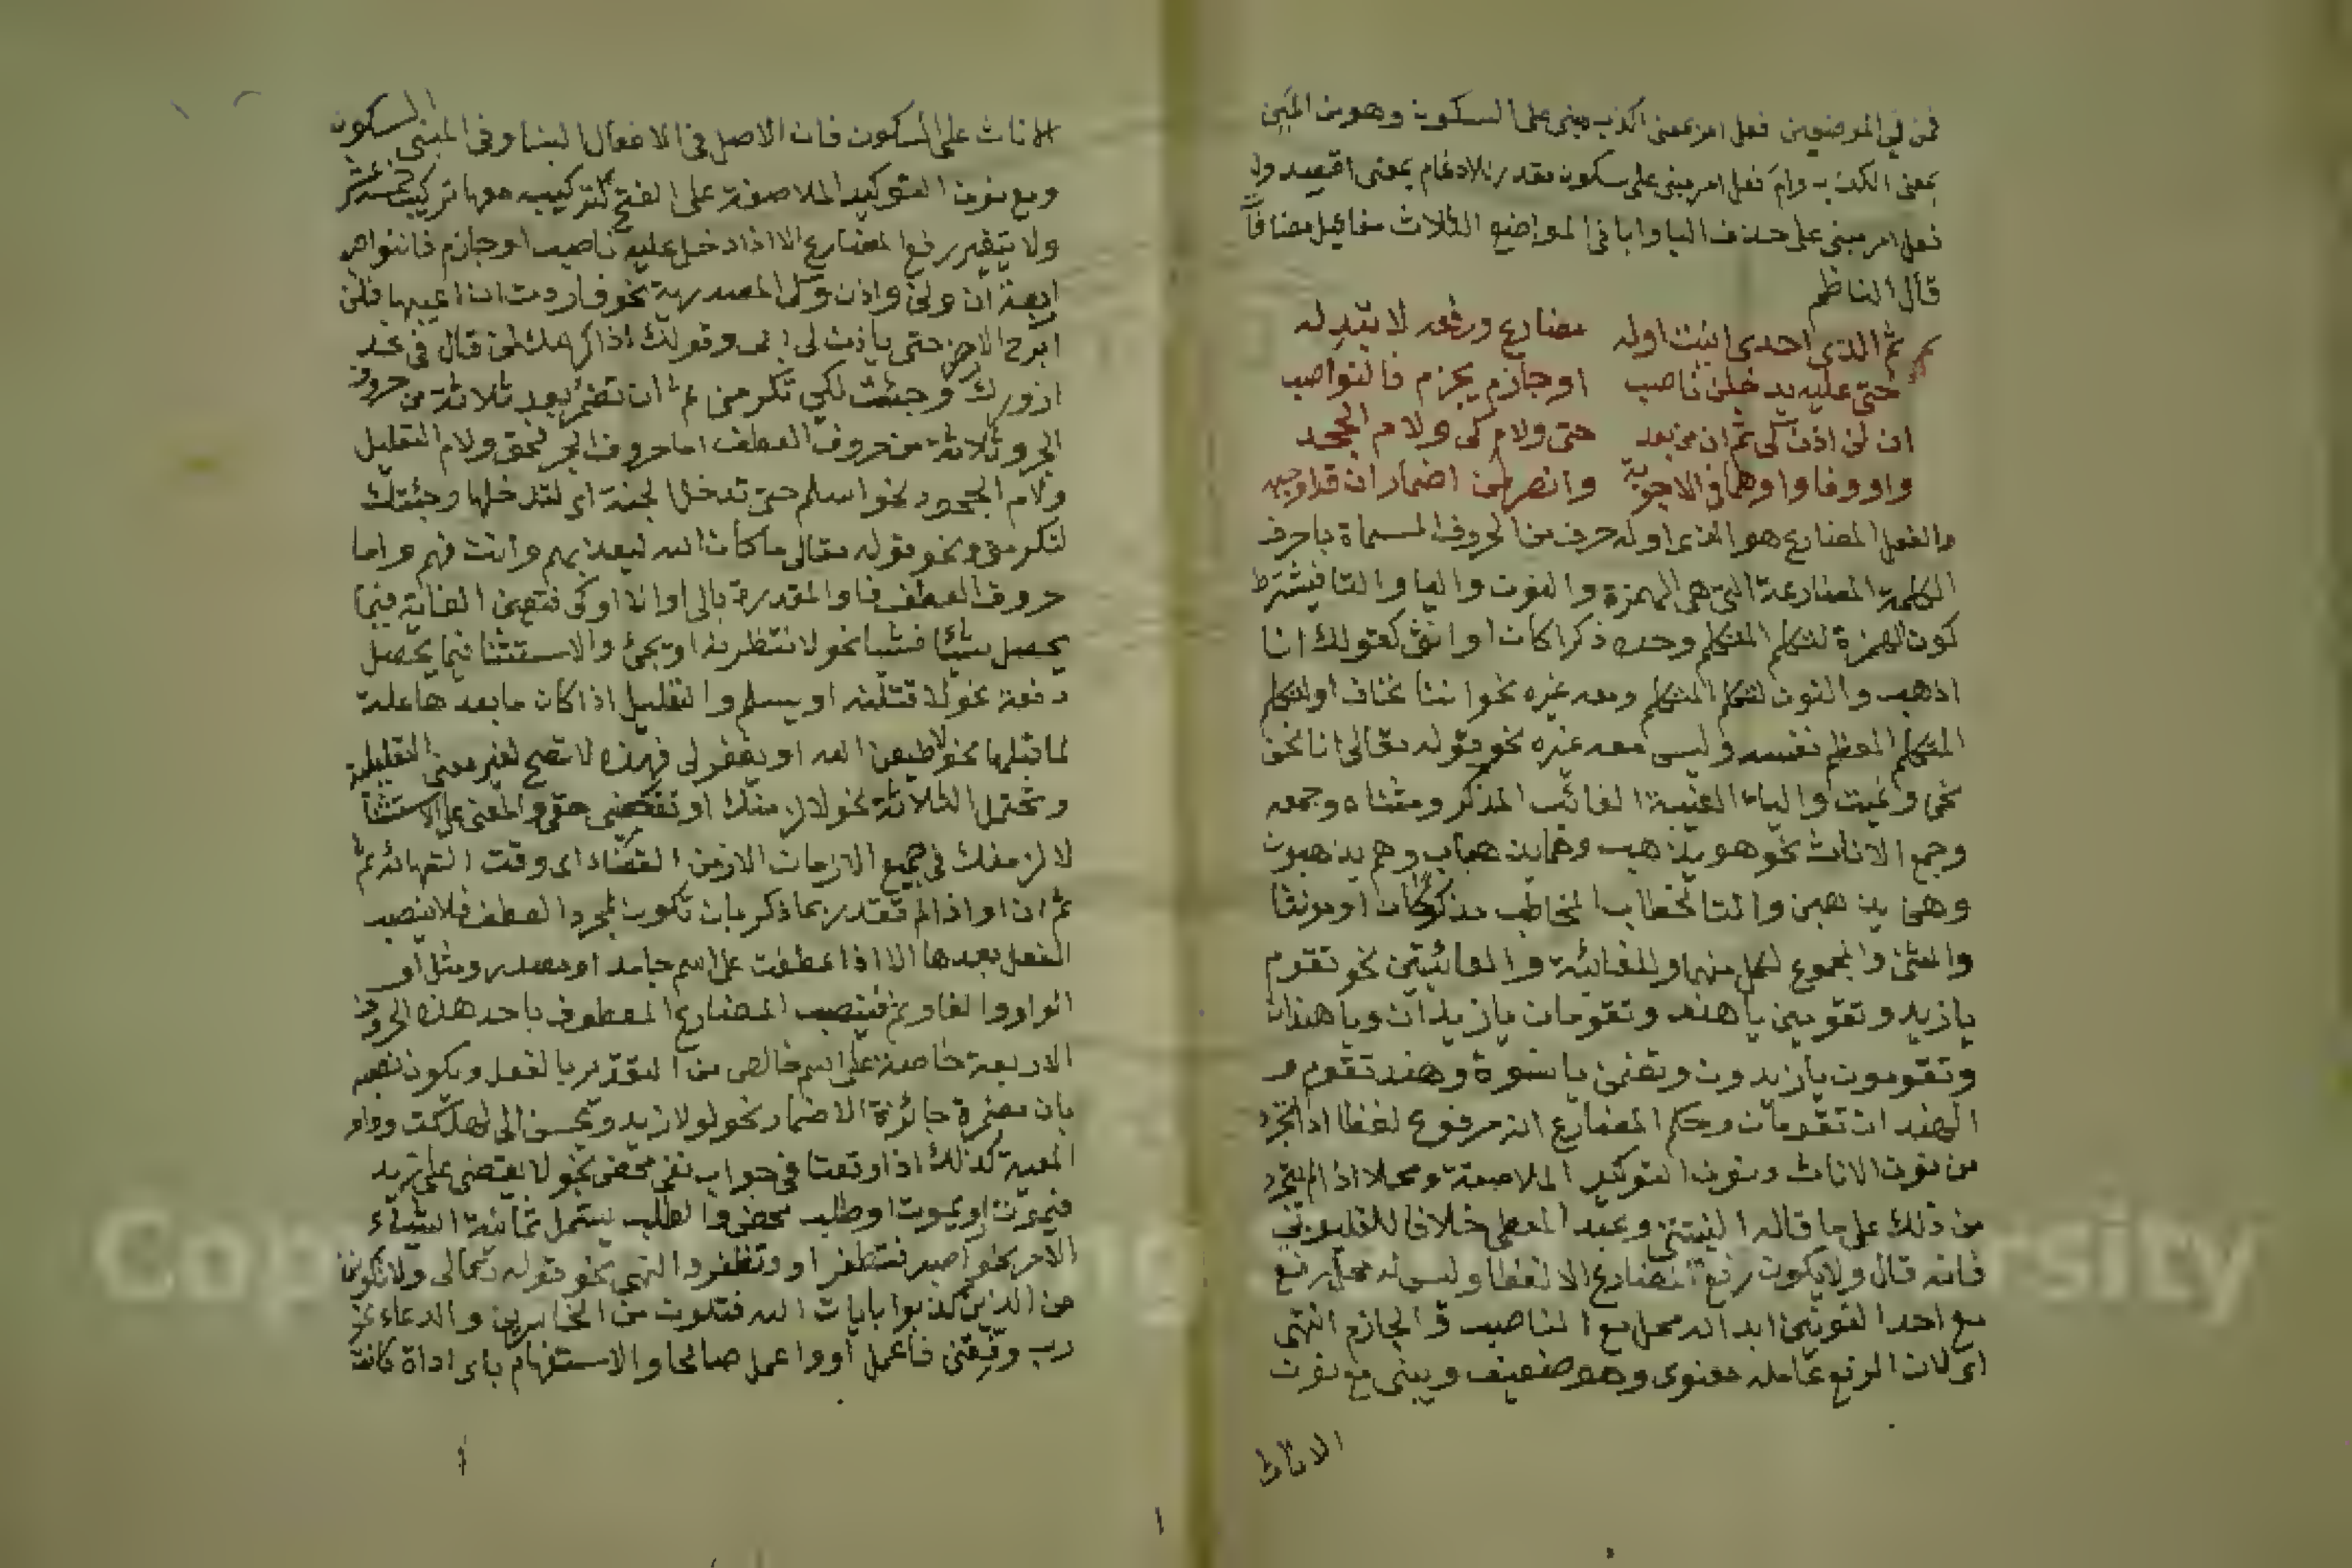 فمن في الموضعين فعل امر بمعنى اكذب مبنى على السكون وهو من المين
بمعنى الكذب وام فعل امر مبنى على سكون مقدر للادغام بمعنى اقصد ول
فعل امر مبنى على حذف اليا وابا فى المواضع الثلاث مفاعيل مضافا
قال الناظم
ثم الذى احدى انيت اوله مضارع ورفعه لا تبدله
حتى عليه يدخلن ناصب او جازم يجزم فالنواصب
ان لن اذن كى ثم ان من بعد حتى ولام كى ولام الجحد
واو وفا واو وهما فى الاجوبة وانصب بهن اضمار ان قد اوجبه
والفعل المضارع هو الذى اوله حرف من الحروف المسماة باحرف
الكلمة المضارعة التى هى الهمزة والنون واليا والتا فيشترط
كون الهمزة لتكلم المتكلم وحده ذكرا كان او انثى كقولك انا
اذهب والنون لتكلم المتكلم ومعه غيره نحو اننا نخاف او لتكلم
المتكلم المعظم نفسه وليس معه غيره نحو قوله تعالى انا نحن
نحى ونميت والياء الغيبة الغائب المذكر ومثناه وجمعه
وجمع الاناث نحو هو يذهب وهما يذهباب وهم يذهبون
وهى يذهبن والتا لخطاب المخاطب مذكرا كان او مونثا
والمثنى والمجموع لكل منهما وللغائبة والغائبتين نحو تقوم
يا زيد وتقومين يا هند وتقومان يا زيدان ويا هندان
وتقومون يا زيدون وتقمن يا نسوة وهند تقوم و
الهندان تقومان وحكم المضارع انه مرفوع لفظا اذا تجرد
من نون الاناث ونون التوكيد الملاصقة ومحلا اذا لم يتجرد
من ذلك على ما قاله النبتيتى وعبد المعطى خلافا للقليوبى
فانه قال ولا يكون رفع المضارع الا لفظا وليس له محل رفع
مع احد النونين ابدا له محل مع الناصب والجازم انتهى
اى لان الرفع عامله معنوى وهو ضعيف ويبنى مع نون
الاناث
الاناث على السكون فان الاصل فى الافعال البنا وفى المبنى السكون
ومع نون التوكيد الملاصقة على الفتح لتركيبه معها تركيب خمسة عشر
ولا يتغير رفع المضارع الا اذا دخل عليه ناصب او جازم فالنواصب
اربعة ان ولن واذن وكى المصدرية نحو فاردت ان اعيبها فلن
ابرح الارض حتى ياذن لى ابى وقولك اذا اكرمك لمن قال فى غد
ازورك وجئت لكى تكرمنى ثم ان تضمر بعد ثلاثة من حروف
الجر وثلاثة من حروف العطف اما حروف الجر فحتى ولام التعليل
ولام الجحود نحو اسلم حتى تدخل الجنة اى لتدخلها وجئتك
لتكرمنى ونحو قوله تعالى ما كان الله ليعذبهم وانت فهم واما
حروف العطف فاو المقدرة بالى او الا او كى فتعين الغاية فيما
يحصل شيئا فشيا نحو لانتظرنه او يجئ والاستثنا فيما يحصل
دفعة نحو لاقتلنه او يسلم والتعليل اذا كان ما بعدها علة
لما قبلها نحو لاطيعن الله او يغفر لى فهذه لا تصح لغير معنى التعليلية
وتحتمل الثلاثة نحو لالزمنك او تقضينى حقى والمعنى على الاستثنا
لالزمنك فى جميع الازمان الا زمن القضاء اى وقت انتهائه ثم
ثم ان او اذا لم تقدر بما ذكر بان تكون لمجرد العطف فلا ينصب
الفعل بعدها الا اذا عطفت على اسم جامد او مصدر ومثل او
الواو والفا وثم فينصب المضارع المعطوف باحد هذه الحروف
الاربعة خاصة على اسم خالص من التقدير بالفعل ويكون نصبه
بان مضمرة جائزة الاضمار نحو لولا زيد ويحسن الى لهلكت وواو
المعية كذلك اذا وقعتا فى جواب نفى محض نحو لا يقضى على زيد
فيموت او يموت او طلب محض والطلب يشمل ثمانية اشياء
الامر نحو اصبر فتظفر او وتظفر والنهى نحو قوله تعالى ولا تكونن
من الذين كذبوا بايات الله فتكون من الخاسرين والدعاء نحو
رب وفقنى فاعمل او واعمل صالحا والاستفهام باى اداة كانت